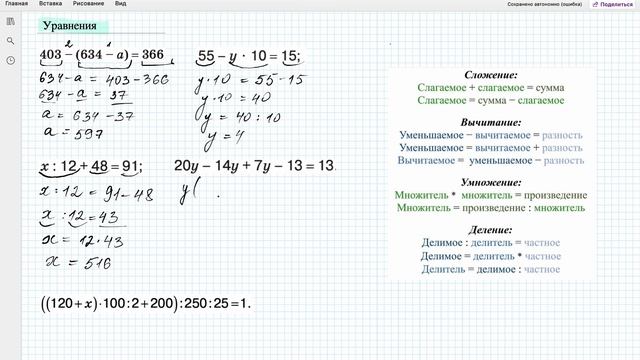 Главная Вставка Рисование Вид
Сохранено автономно (ошибка) Поделиться
Уравнения
2 1
403 − (634 − a) = 366
634 − a = 403 − 366
634 − a = 37
a = 634 − 37
a = 597
55 − y · 10 = 15;
y · 10 = 55 − 15
y · 10 = 40
y = 40 : 10
y = 4
x : 12 + 48 = 91;
x : 12 = 91 − 48
x : 12 = 43
x = 12 · 43
x = 516
20y − 14y + 7y − 13 = 13.
y(
((120 + x) · 100 : 2 + 200) : 250 : 25 = 1.
Сложение:
Слагаемое + слагаемое = сумма
Слагаемое = сумма − слагаемое
Вычитание:
Уменьшаемое − вычитаемое = разность
Уменьшаемое = вычитаемое + разность
Вычитаемое = уменьшаемое − разность
Умножение:
Множитель * множитель = произведение
Множитель = произведение : множитель
Деление:
Делимое : делитель = частное
Делимое = делитель * частное
Делитель = делимое : частное